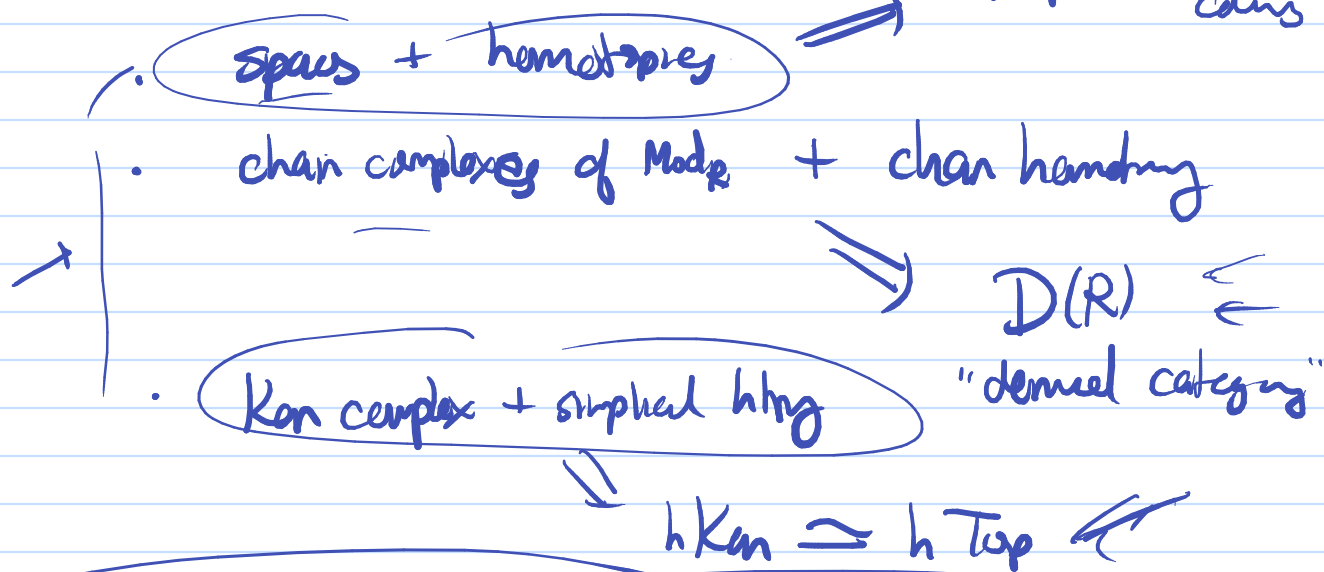 spaces + homotopies
chain complexes of Mod_R + chain homotopy
D(R)
"derived category"
Kan complex + simplicial htpy
hKan ≃ hTop